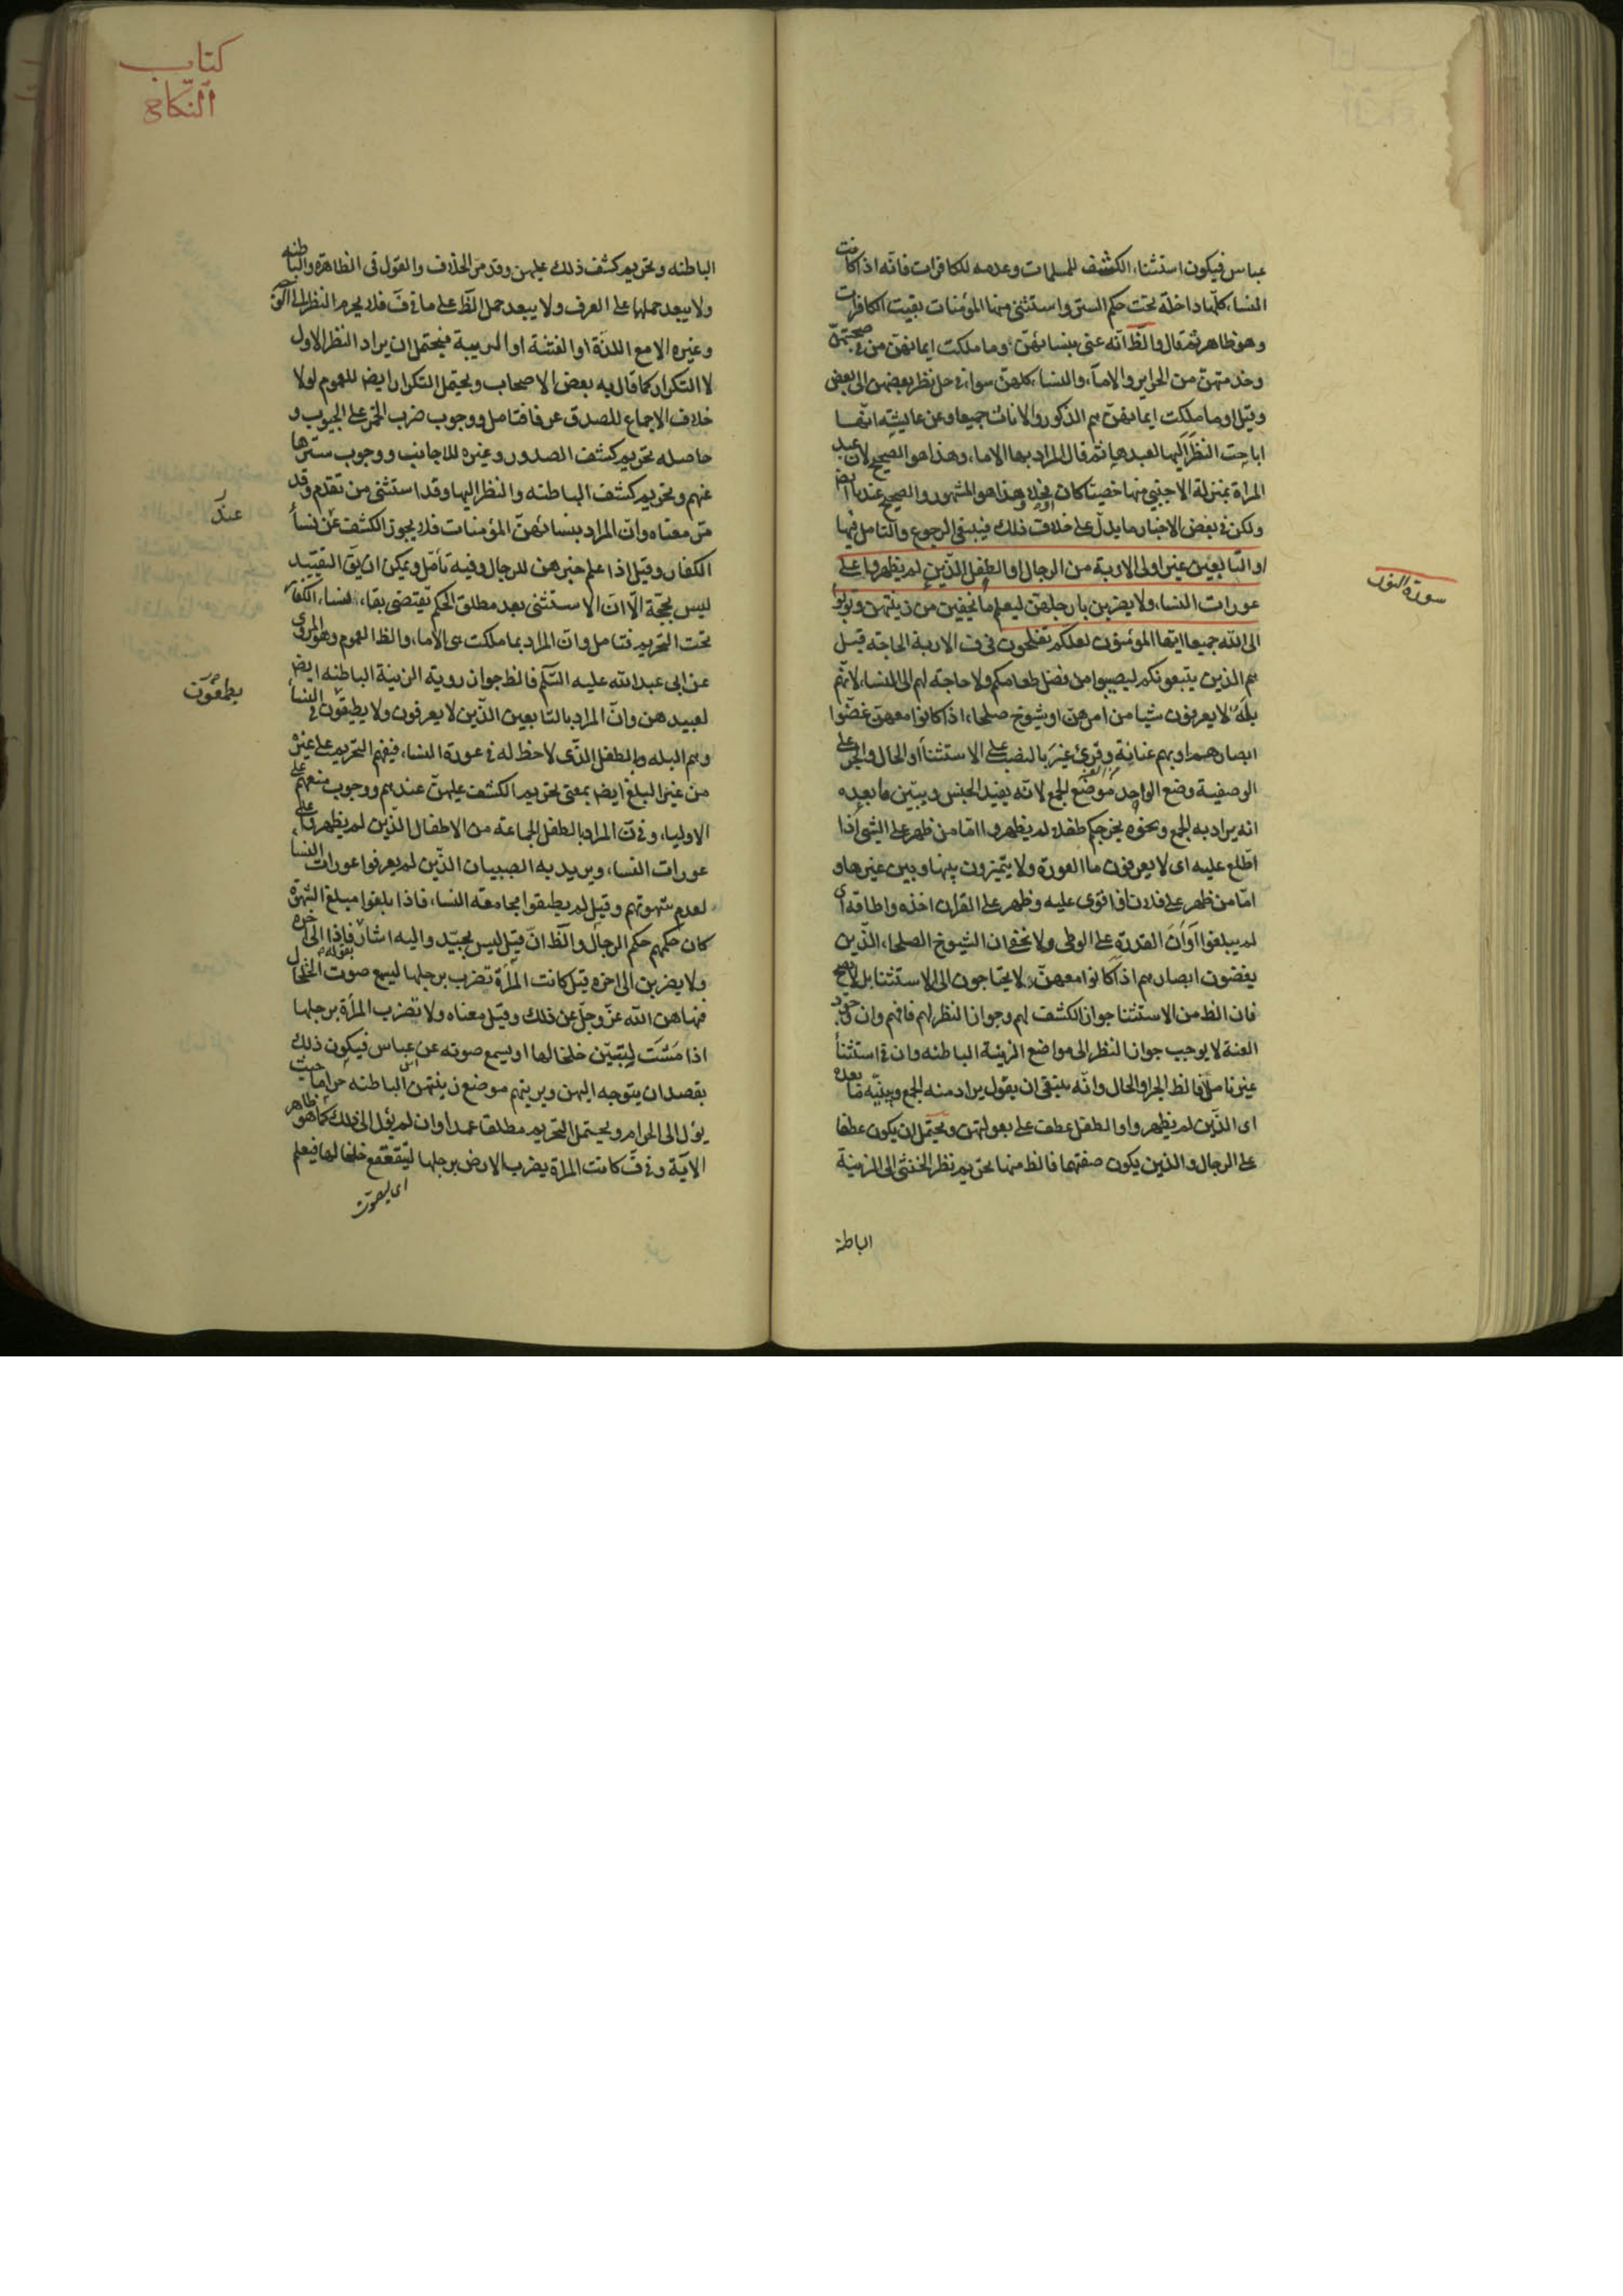 عباس فيكون استثناء الكشف للمسلمات وعدمه للكافرات فانه اذا كانت
النساء كلها داخلة تحت حكم الستر واستثنى منها المؤمنات بقيت الكافرات
وهو ظاهر ثم قال والظ انه عنى بنسائهن وما ملكت ايمانهن من في صحبتهن
وخدمتهن من الحراير والاماء والنساء كلهن سواء في حل نظر بعضهن الى بعض
وقيل او ما ملكت ايمانهن هم الذكور والاناث جميعا وعن عايشة انها
اباحت النظر اليها لعبدها ثم قال المراد بها الاماء وهذا هو الصحيح لان عبد
المراة بمنزلة الاجنبي منها خصيا كان او فحلا وهذا هو المشهور والصحيح عندنا ايض
ولكن في بعض الاخبار ما يدل على خلاف ذلك فينبغي الرجوع والتامل فيها
او التابعين غير اولى الاربة من الرجال او الطفل الذين لم يظهروا على
عورات النساء ولا يضربن بارجلهن ليعلم ما يخفين من زينتهن وتوبوا
الى الله جميعا ايها المؤمنون لعلكم تفلحون في ف الاربة الحاجة قيل
هم الذين يتبعونكم ليصيبوا من فضل طعامكم ولا حاجة لهم الى النساء لانهم
بله لا يعرفون شيا من امرهن او شيوخ صلحاء اذا كانوا معهن غضوا
ابصارهم او بهم عنانة وقرئ غير بالنصب على الاستثناء او الحال والجر على
الوصفية وضع الواحد موضع الجمع لانه يفيد الجنس ويبين ما بعده
انه يراد به الجمع ونحوه يخرجكم طفلا لم يظهروا اما من ظهر على الشئ اذا
اطلع عليه اى لا يعرفون ما العورة ولا يتميزون بينها وبين غيرها و
اما من ظهر على فلان اذا قوى عليه وظهر على القران اخذه واطاقه اى
لم يبلغوا اوان القدرة على الوطى ولا يخفى ان الشيوخ الصلحاء الذين
يغضون ابصارهم اذا كانوا معهن لا يحتاجون الى الاستثنا بل لا يصح
فان الظ من الاستثنا جواز الكشف لهم وجواز النظر لهم فافهم وان وجود
العنة لا يوجب جواز النظر الى مواضع الزينة الباطنه وان في استثناء
غير تاملا فالظ الجر او الحال وانه ينبغى ان يقول يراد منه الجمع ويبينه ما بعده
اى الذين لم يظهروا او الطفل عطف على بعولتهن ويحتمل ان يكون عطفا
على الرجال والذين يكون صفتها فالظ منها تحريم نظر الخنثى الى الزينة
الباطنة
سورة النور
كتاب
النكاح
الباطنه وتحريم كشف ذلك عليهن وقد مر الخلاف والقول فى الظاهرة والباطنه
ولا يبعد حملها على العرف ولا يبعد حمل الظ على ما في ف فلا يحرم النظر الى الكف
وغيره الا مع اللذة او الفتنة او الريبة فيحتمل ان يراد النظر الاول
لا التكرار كما قال به بعض الاصحاب ويحتمل التكرار ايض للعموم لولا
خلاف الاجماع للصدق عرفا فتامل ووجوب ضرب الخمر على الجيوب و
حاصله تحريم كشف الصدور وغيره للاجانب ووجوب سترها
عنهم وتحريم كشف الباطنه والنظر اليها وقد استثنى من تقدم وقد
مر معناه وان المراد بنسائهن المؤمنات فلا يجوز الكشف عن نساء
الكفار وقيل اذا علم خبرهن للرجال وفيه تامل ويمكن ان يق التقييد
ليس بحجة الا ان الاستثنى بعد مطلق الحكم يقتضى بقاء نساء الكفار
تحت التحريم فتامل وان المراد بما ملكت هى الاماء والظ العموم وهو المروى
عن ابى عبد الله عليه السلم فالظ جواز روية الزينة الباطنه ايض
لعبيدهن وان المراد بالتابعين الذين لا يعرفون ولا يطيقون في النساء
وهم البله والطفل الذى لا حظ له في عورة النساء فيفهم التحريم على غيره
من غير البلغ ايض بمعنى تحريم الكشف عليهن عندهم ووجوب منعهم على
الاولياء وفي ن المراد بالطفل الجماعة من الاطفال الذين لم يظهروا على
عورات النساء ويريد به الصبيان الذين لم يعرفوا عورات النساء
لعدم شهوتهم وقيل لم يطيقوا مجامعة النساء فاذا بلغوا مبلغ الشهوة
كان حكمهم حكم الرجال والظ ان قيل ليس بجيد واليه اشار بقوله فاذا الى اخره
ولا يضربن الى اخره قيل كانت المراة تضرب برجلها ليسمع صوت الخلخال
فنهاهن الله عز وجل عن ذلك وقيل معناه ولا تضرب المراة برجلها
اذا مشت ليتبين خلخالها او يسمع صوته عن ابن عباس فيكون ذلك
بقصد ان يتوجه اليهن ويريتهم موضع زينتهن الباطنه حراما حيث
يؤل الى الحرام ويحتمل التحريم مطلقا عمدا وان لم يؤل الى ذلك كما هو ظاهر
الآية وفي ف كانت المراة يضرب الارض برجلها ليتقعقع خلخالها فيعلم
اى ليصوت